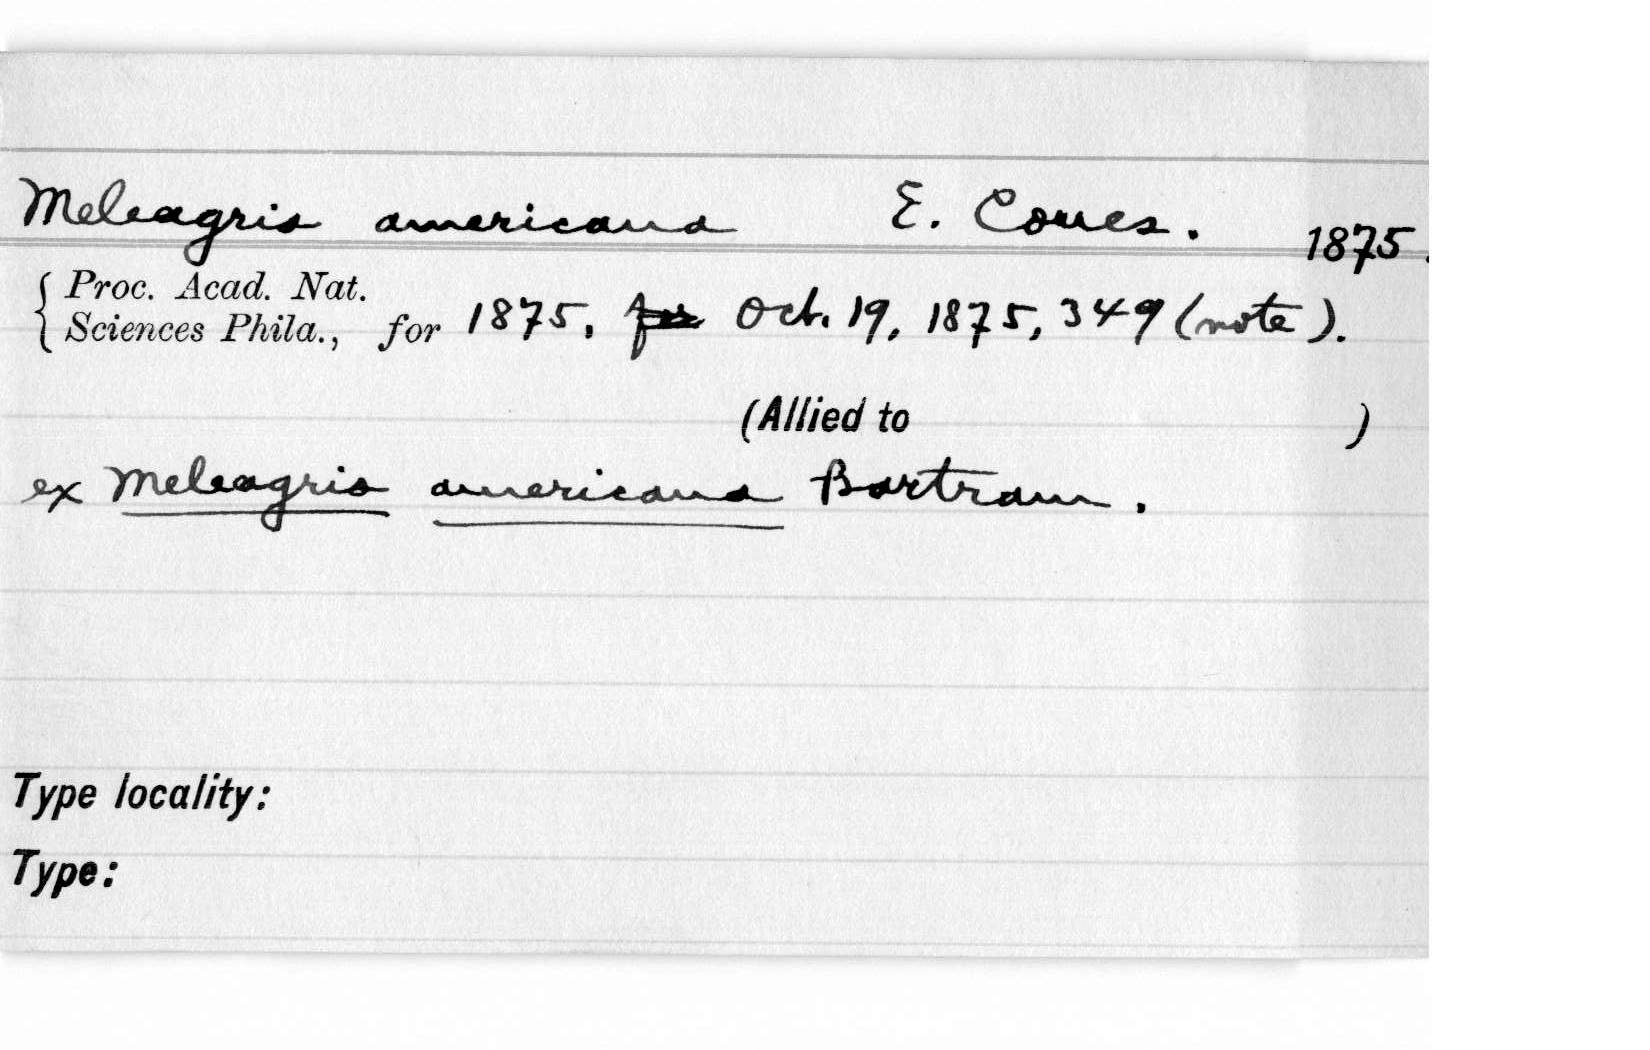 Meleagris americana E. Coues. 1875.
{ Proc. Acad. Nat.
Sciences Phila., for 1875, Oct. 19, 1875, 349 (note).
(Allied to )
ex Meleagris americana Bartram.
Type locality:
Type: